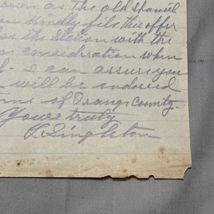 known as the old Spanish
you kindly file this offer
for the station with the
consideration when
I can assure you
will be endorsed
of Orange County.
Yours truly
Singleton